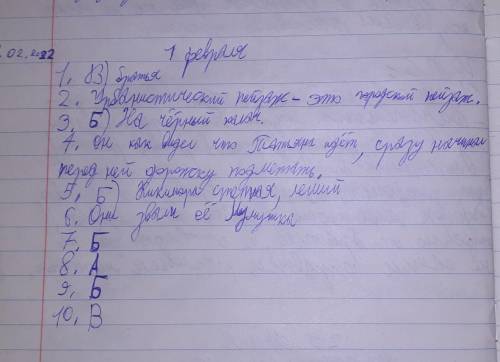 02.2022
1 февраля
1. В) братья
2. Урбанистический пейзаж - это городской пейзаж.
3. Б) На чёрный
4. Он как видел что Татьяна идёт, сразу начинал
перед ней дорожку подметать.
5. Б) Кикимора болотная, леший
6. Они звали её Мумушка
7. Б
8. А
9. Б
10. В